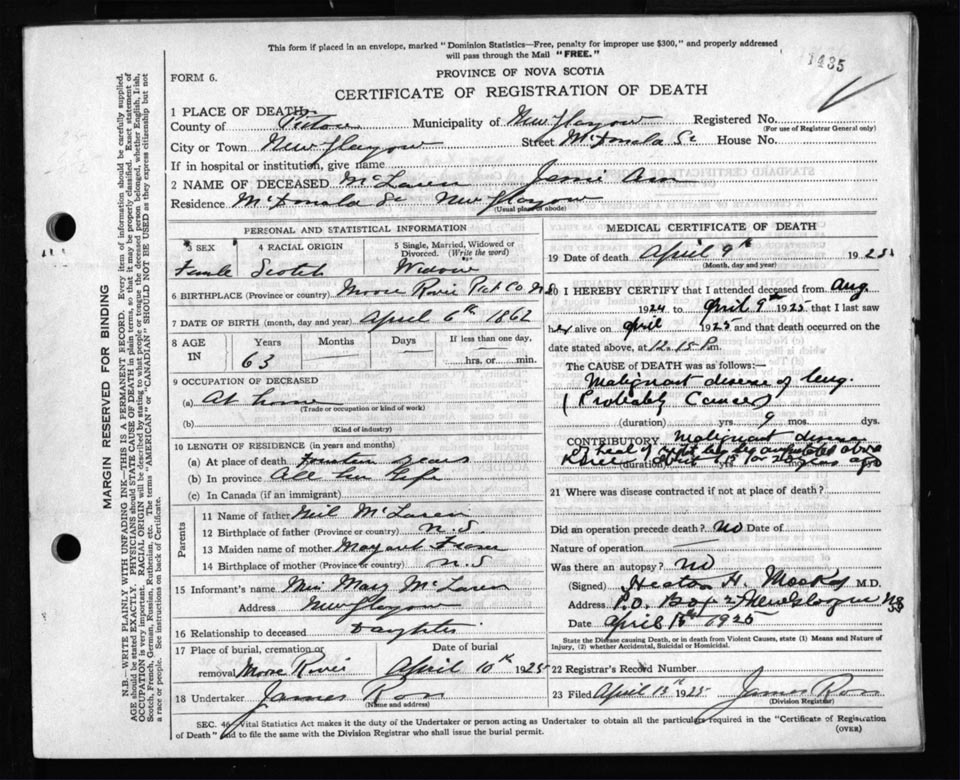 This form if placed in an envelope, marked "Dominion Statistics—Free, penalty for improper use $300," and properly addressed
will pass through the Mail "FREE."
1435
FORM 6.
PROVINCE OF NOVA SCOTIA
CERTIFICATE OF REGISTRATION OF DEATH
1 PLACE OF DEATH
County of Pictou Municipality of New Glasgow Registered No.
(For use of Registrar General only)
City or Town New Glasgow Street McDonald St House No.
If in hospital or institution, give name
2 NAME OF DECEASED McLaren Ann
Residence McDonald St New Glasgow
(Usual place of abode)
PERSONAL AND STATISTICAL INFORMATION
3 SEX 4 RACIAL ORIGIN 5 Single, Married, Widowed or Divorced. (Write the word)
Female Scotch Widow
6 BIRTHPLACE (Province or country) Pict Co. N.S.
7 DATE OF BIRTH (month, day and year) April 6th 1862
8 AGE IN Years Months Days If less than one day,
63 hrs. or min.
9 OCCUPATION OF DECEASED
(a) At home
(Trade or occupation or kind of work)
(b)
(Kind of industry)
10 LENGTH OF RESIDENCE (in years and months)
(a) At place of death Fourteen years
(b) In province All her life
(c) In Canada (if an immigrant)
Parents
11 Name of father Neil McLaren
12 Birthplace of father (Province or country) N.S.
13 Maiden name of mother Margaret Fraser
14 Birthplace of mother (Province or country) N.S
15 Informant's name Miss Mary McLaren
Address New Glasgow
16 Relationship to deceased Daughter
17 Place of burial, cremation or removal Date of burial
April 10th 1925
18 Undertaker James Ross
(Name and address)
MEDICAL CERTIFICATE OF DEATH
19 Date of death April 9th 1925
(Month, day and year)
20 I HEREBY CERTIFY that I attended deceased from Aug
1924 to April 9th 1925 that I last saw
her alive on April 1925 and that death occurred on the
date stated above, at 12.15 P.m.
The CAUSE OF DEATH was as follows:—
Malignant disease of lung.
(Probably Cancer)
(duration) yrs. 9 mos. dys.
CONTRIBUTORY Malignant disease
of heel of leg amputated above
Knee (duration) 19 or 20 yrs ago
21 Where was disease contracted if not at place of death?
Did an operation precede death? No Date of
Nature of operation —
Was there an autopsy? No
(Signed) H. M.D.
Address P.O. Box New Glasgow NS
Date April 1925
State the Disease causing Death, or in death from Violent Causes, state (1) Means and Nature of
Injury, (2) whether Accidental, Suicidal or Homicidal.
22 Registrar's Record Number
23 Filed April 13th 1925 James Ross
(Division Registrar)
SEC. 46 Vital Statistics Act makes it the duty of the Undertaker or person acting as Undertaker to obtain all the particulars required in the "Certificate of Registration
of Death" and to file the same with the Division Registrar who shall issue the burial permit.
(OVER)
MARGIN RESERVED FOR BINDING
N.B.—WRITE PLAINLY WITH UNFADING INK—THIS IS A PERMANENT RECORD. Every item of information should be carefully supplied.
AGE should be stated EXACTLY. PHYSICIANS should STATE CAUSE OF DEATH in plain terms, so that it may be properly classified. Exact statement of
OCCUPATION is very important. RACIAL ORIGIN will be described by stating to what people or tongue the deceased person belonged, whether English, Irish,
Scotch, French, German, Russian, Ruthenian, etc. The terms "AMERICAN" or "CANADIAN" SHOULD NOT BE USED as they express citizenship but not
a race or people. See instructions on back of Certificate.